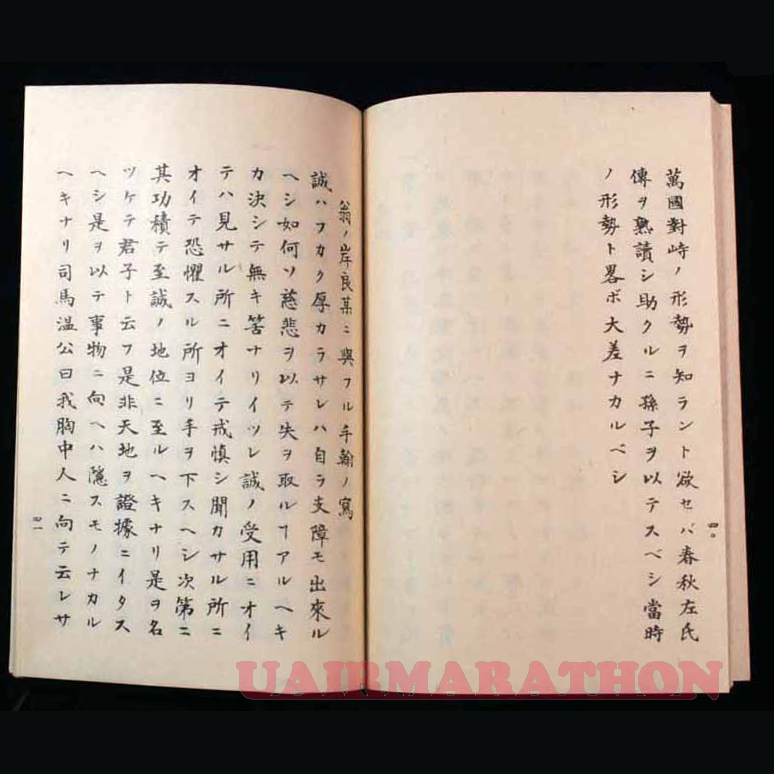 萬國對峙ノ形勢ヲ知ラント欲セバ春秋左氏
傳ヲ熟讀シ助クルニ孫子ヲ以テスベシ當時
ノ形勢ト畧ボ大差ナカルベシ
四〇
翁ノ岸良某ニ與フル手翰ノ寫
誠ハフカク厚カラサレハ自ラ支障モ出來ル
ヘシ如何ソ慈悲ヲ以テ失ヲ取ルヿアルヘキ
カ決シテ無キ筈ナリイツレ誠ノ受用ニオイ
テハ見サル所ニオイテ戒慎シ聞カサル所ニ
オイテ恐懼スル所ヨリ手ヲ下スヘシ次第ニ
其功積テ至誠ノ地位ニ至ルヘキナリ是ヲ名
ツケテ君子ト云フ是非天地ヲ證據ニイタス
ヘシ是ヲ以テ事物ニ向ヘハ隱スモノナカル
ヘキナリ司馬温公曰我胸中人ニ向テ云レサ
四一
UAIRMARATHON